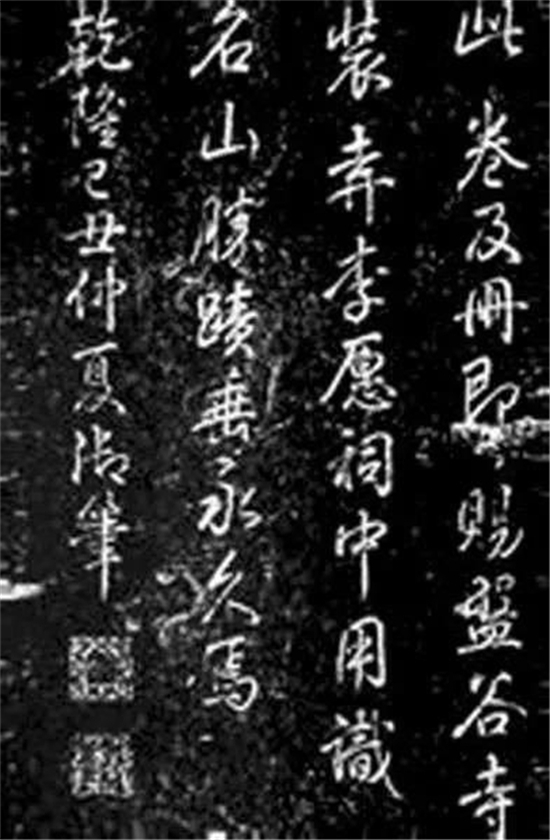 此卷及冊即賜盤谷寺
裝弆李愿祠中用識
名山勝蹟垂永久焉
乾隆己丑仲夏御筆